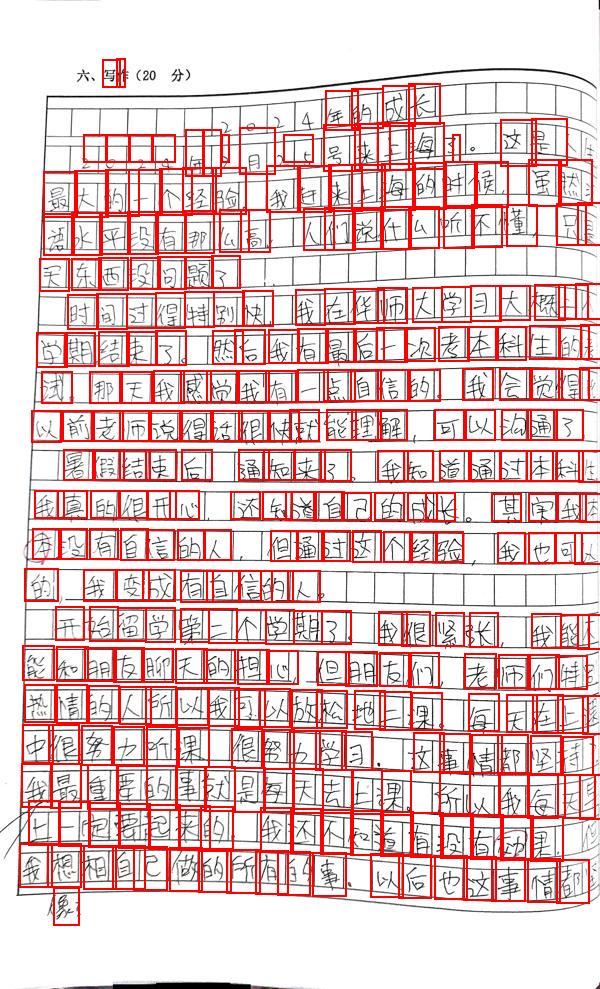 六、写作(20 分)
2024年的成长
2024年9月25号来上海了。这是人生
最大的一个经验。我赶来上海的时候，虽然
语水平没有那么高。人们说什么听不懂，只
天东西没问题了
时间过得特别快，我在华师大学习大概一个
学期结束了。然后我有最后一次考本科生的
试。那天我感觉我有一点自信的。我会觉得
以前老师说得话很快就能理解，可以沟通了
暑假结束后，通知来了。我知道通过本科生
我真的很开心，还知道自己的成长。其实我本
没有自信的人，但通过这个经验，我也可以
的，我变成有自信的人。
开始留学第二个学期了。我很紧张，我能不
能和朋友聊天的担心，但朋友们，老师们特别
热情的人所以我可以放松地上课。每天在上课
中很努力听课，很努力学习。这事情都坚持了
我最重要的事就是每天去上课。所以我每天早
上一定要起来的。我还不知道有没有效果。
我想相自己做的所有的事。以后也这事情都
像